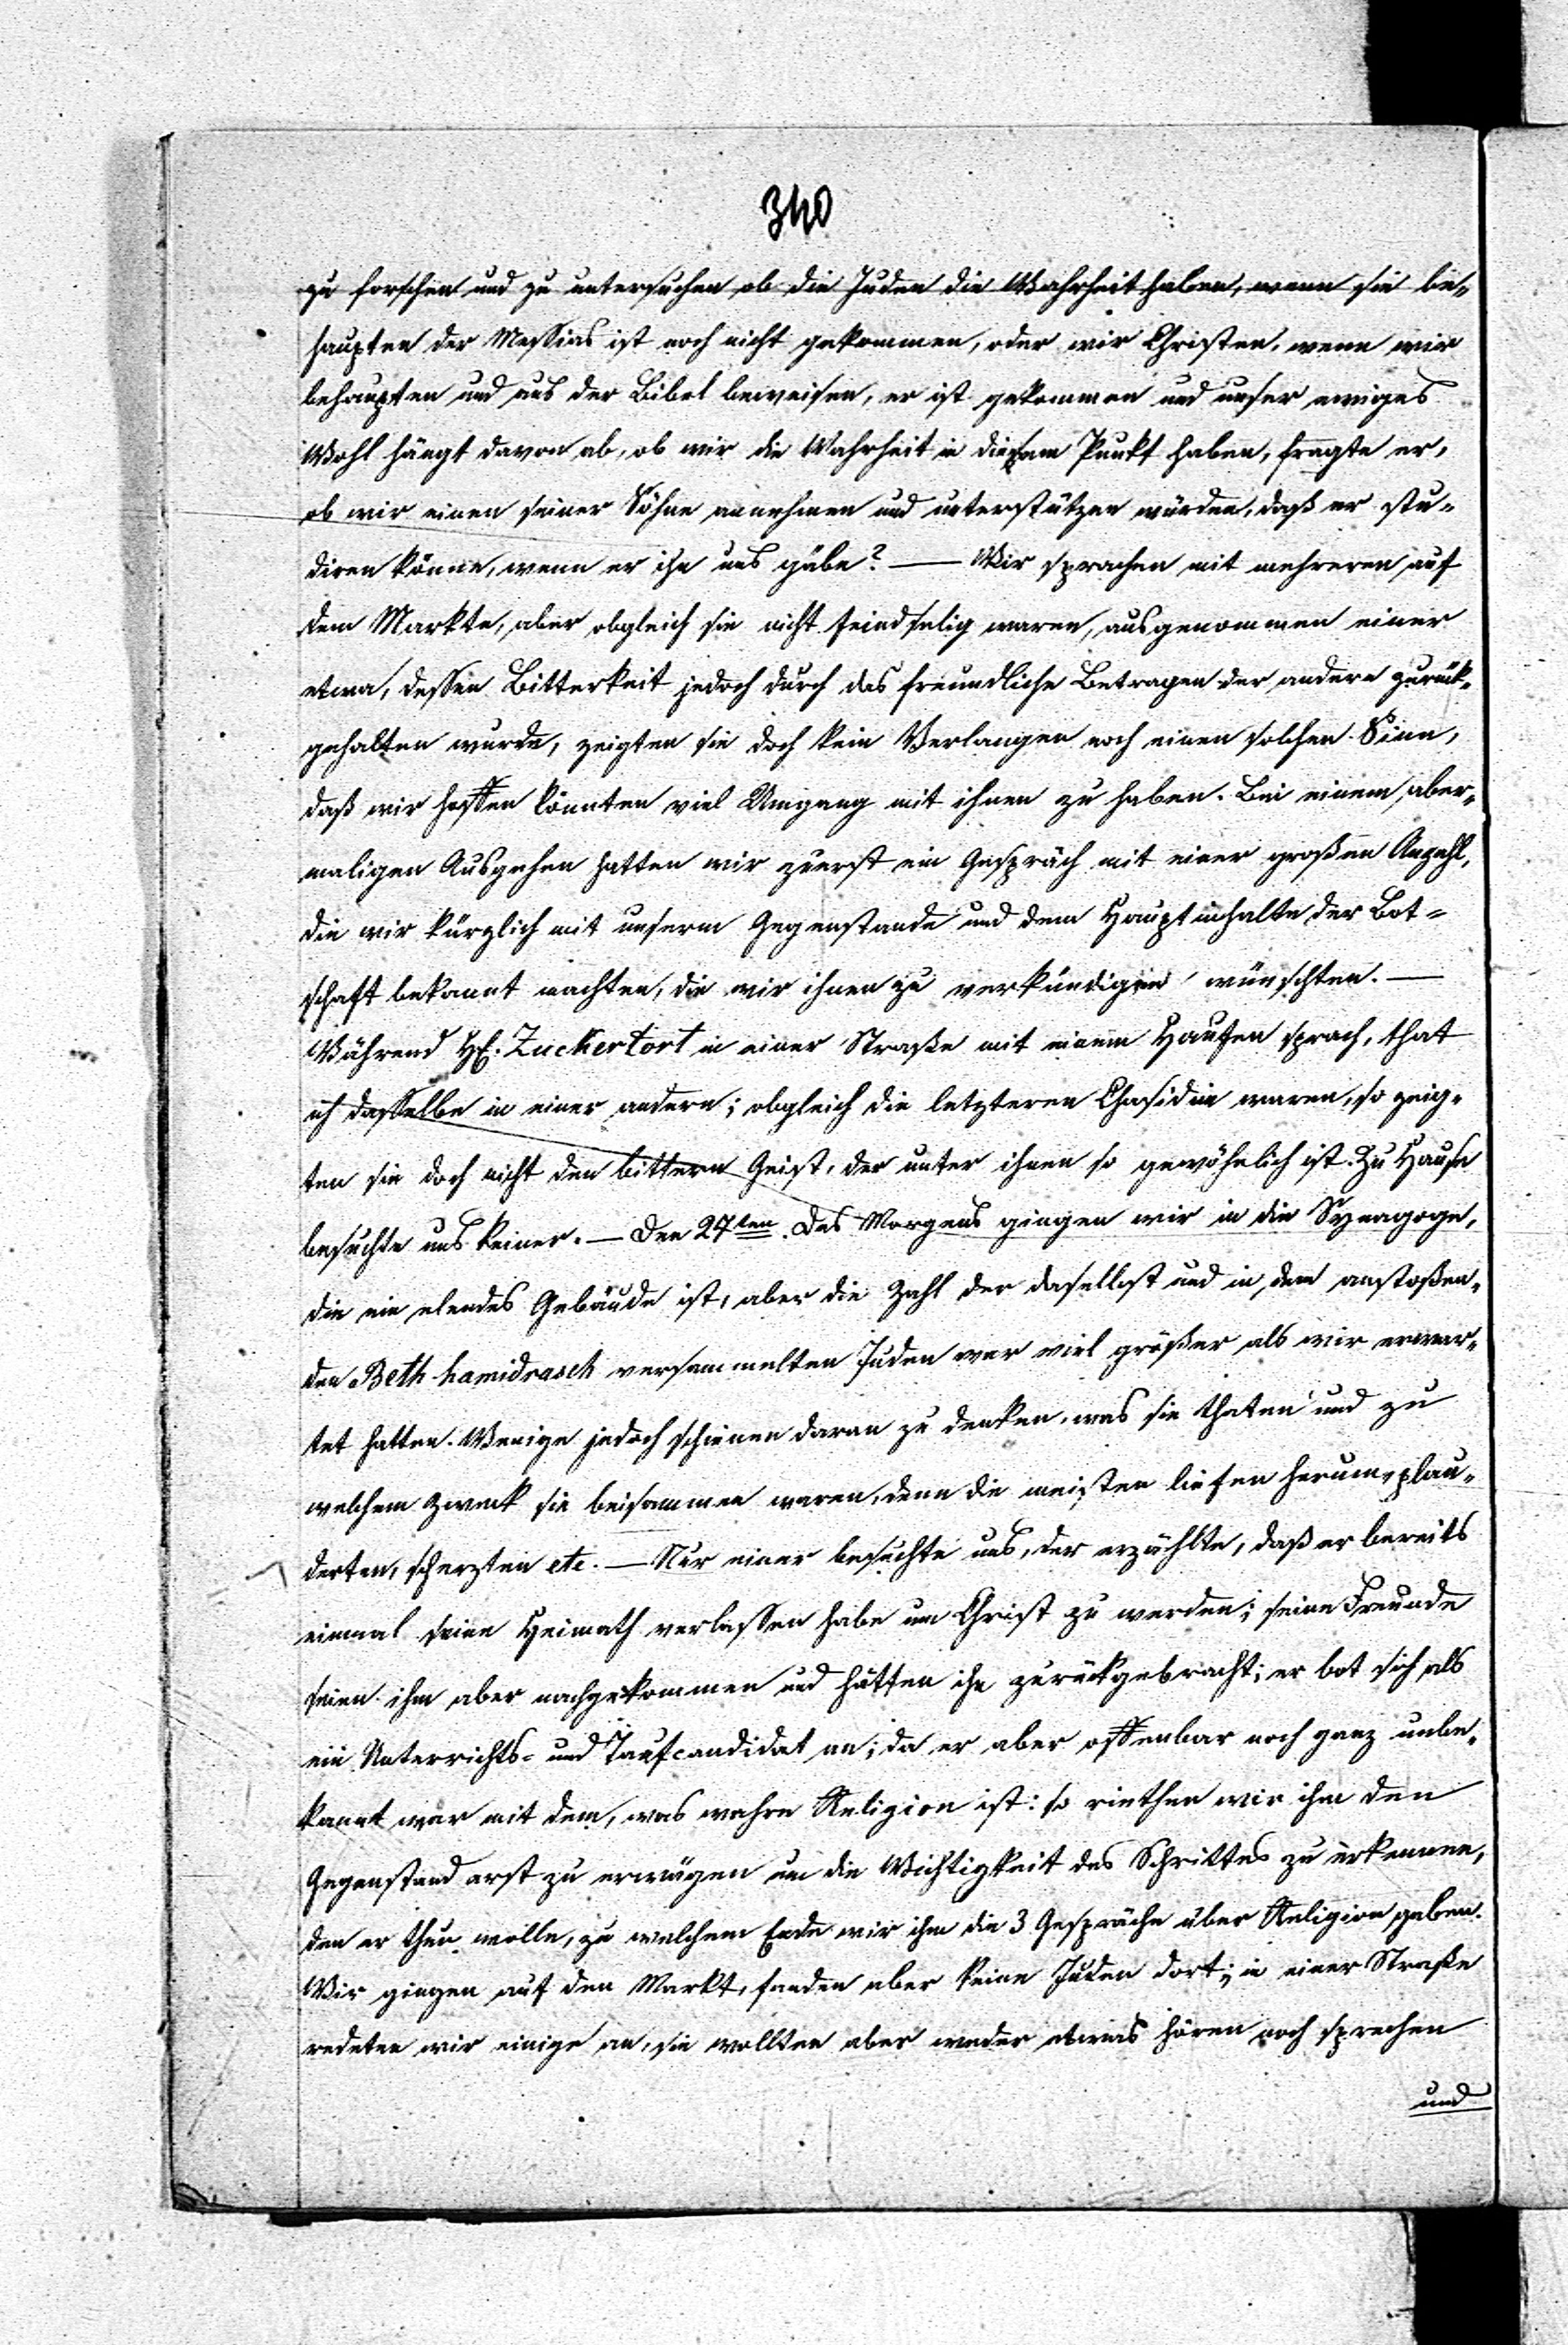 340
zu forschen und zu untersuchen ob die Juden die Wahrheit haben, wenn sie be-
haupten der Messias ist noch nicht gekommen, oder wir Christen, wenn wir
behaupten und aus der Bibel beweisen, er ist gekommen und unser ewiges
Wohl hängt davon ab, ob wir die Wahrheit in diesem Punkt haben, fragte er,
ob wir einen seiner Söhne annehmen und unterstützen würden, daß er stu-
diren könne, wenn er ihn uns gäbe? — Wir sprachen mit mehreren auf
dem Markte, aber obgleich sie nicht feindselig waren, ausgenommen einer
etwa, dessen Bitterkeit jedoch durch das freundliche Betragen der andern zurük-
gehalten wurde, zeigten sie doch kein Verlangen noch einen solchen Sinn,
daß wir hoffen könnten viel Umgang mit ihnen zu haben. Bei einem aber-
maligen Ausgehen hatten wir zuerst ein Gespräch mit einer großen Anzahl,
die wir kürzlich mit unserm Gegenstande und dem Hauptinhalte der Bot-
schaft bekannt machten, die wir ihnen zu verkündigen wünschten. —
Während H. Zuckertort in einer Straße mit einem Haufen sprach, that
ich dasselbe in einer andern; obgleich die letzteren Chasidim waren, so zeig-
ten sie doch nicht den bittern Geist, der unter ihnen so gewöhnlich ist. Zu Hause
besuchte uns keiner. — Den 27ten. Des Morgens gingen wir in die Synagoge,
die ein elendes Gebäude ist, aber die Zahl der daselbst und in dem anstoßen-
den Beth hamidrasch versammelten Juden war viel größer als wir erwar-
tet hatten. Wenige jedoch schienen daran zu denken, was sie thaten und zu
welchem Zwek sie beisammen waren, denn die meisten liefen herum, plau-
derten, scherzten etc. — Nur einer besuchte uns, der erzählte, daß er bereits
einmal seine Heimath verlassen habe um Christ zu werden; seine Freunde
seien ihm aber nachgekommen und hätten ihn zurückgebracht; er bot sich als
ein Unterrichts- und Taufcandidat an; da er aber offenbar noch ganz unbe-
kannt war mit dem, was wahre Religion ist: so riethen wir ihm den
Gegenstand erst zu erwägen um die Wichtigkeit des Schrittes zu erkennen,
den er thun wolle, zu welchem Ende wir ihm die 3 Gespräche über Religion gaben.
Wir gingen auf den Markt, fanden aber keine Juden dort; in einer Straße
redeten wir einige an, sie wollten aber weder etwas hören noch sprechen
und